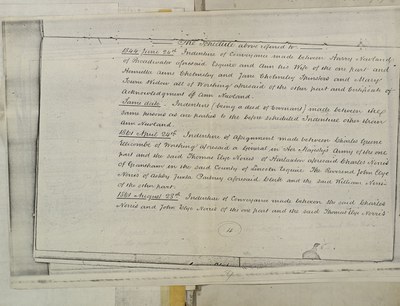 The Schedule above referred to
1844 June 24th Indenture of Conveyance made between Harry Newland
of Broadwater aforesaid Esquire and Ann his Wife of the one part and
Henrietta Ann Cholmley and Jane Cholmley Spinsters and Mary
Widow all of Worthing aforesaid of the other part and Certificate of
Acknowledgment of Ann Newland.
Same date Indenture (being a deed of Covenant) made between the
same persons as are parties to the before scheduled Indenture other than
Ann Newland.
1861 April 24th Indenture of Assignment made between Charles
of Worthing aforesaid a General in Her Majesty's Army of the one
part and the said Thomas Elye Norris of aforesaid Charles Norris
of Grantham in the said County of Lincoln Esquire The Reverend John Elye
Norris of Ashby aforesaid Clerk and the said William Norris
of the other part.
1861 August 28th Indenture of Conveyance made between the said Charles
Norris and John Elye Norris of the one part and the said Thomas Elye Norris